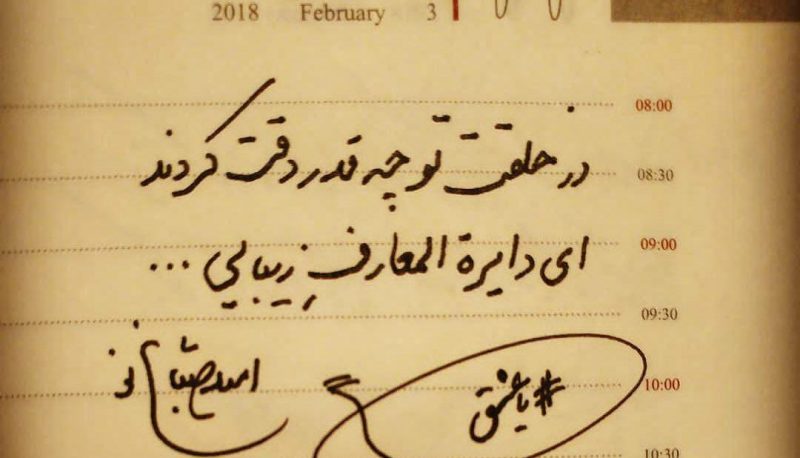 2018 February 3
08:00
در خلقت تو چه قدر دقت کردند
08:30
09:00
ای دایرة المعارفِ زیبایی ...
09:30
امید صباغ نو
10:00
#یا عشق
10:30